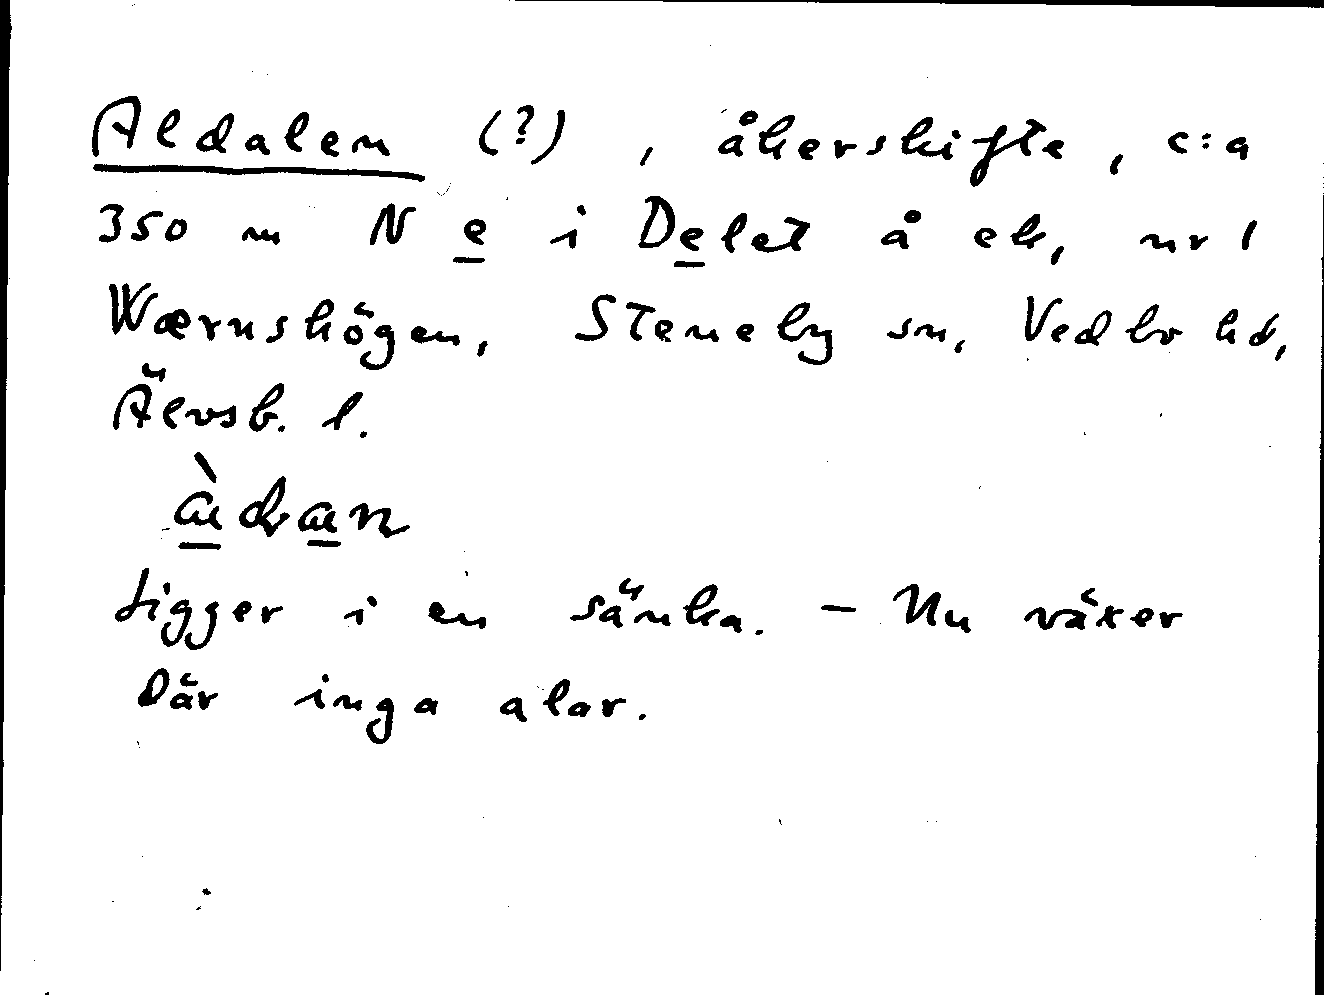 Aldalen (?), åkerskifte, c:a
350 m N e i Delet å ek, nr 1
Wærnshögen, Steneby sn, Vedbo hd,
Älvsb. l.
Ligger i en sänka. – Nu växer
där inga alar.